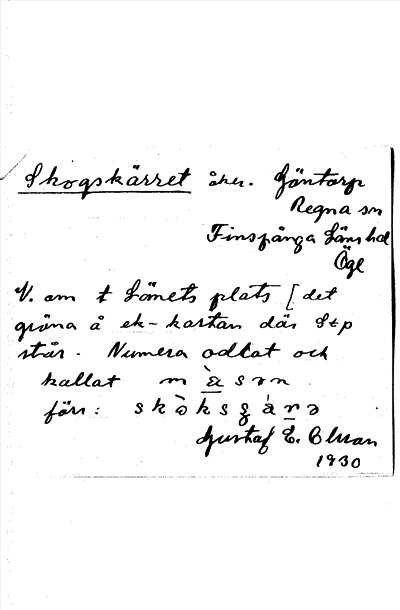 Skogskärret åker. Göntorp
Regna sn
Finspånga Läns hd
Ögl
V. om t Lämets plats [det
gröna å ek-kartan där Stp
står. Numera odlat och
kallat m à s ə n
förr: s k ò k s ʒ á r ə
Gustaf E. Olsson
1930